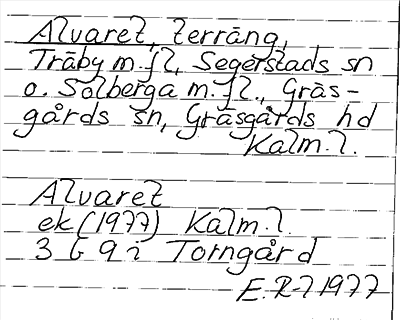 Alvaret, terräng,
Träby m.fl, Segerstads sn
o. Solberga m.fl., Gräs-
gårds sn, Gräsgårds hd
Kalm.l.
Alvaret
ek (1977) Kalm.l.
3 G 9 i Torngård
E.R-7 1977